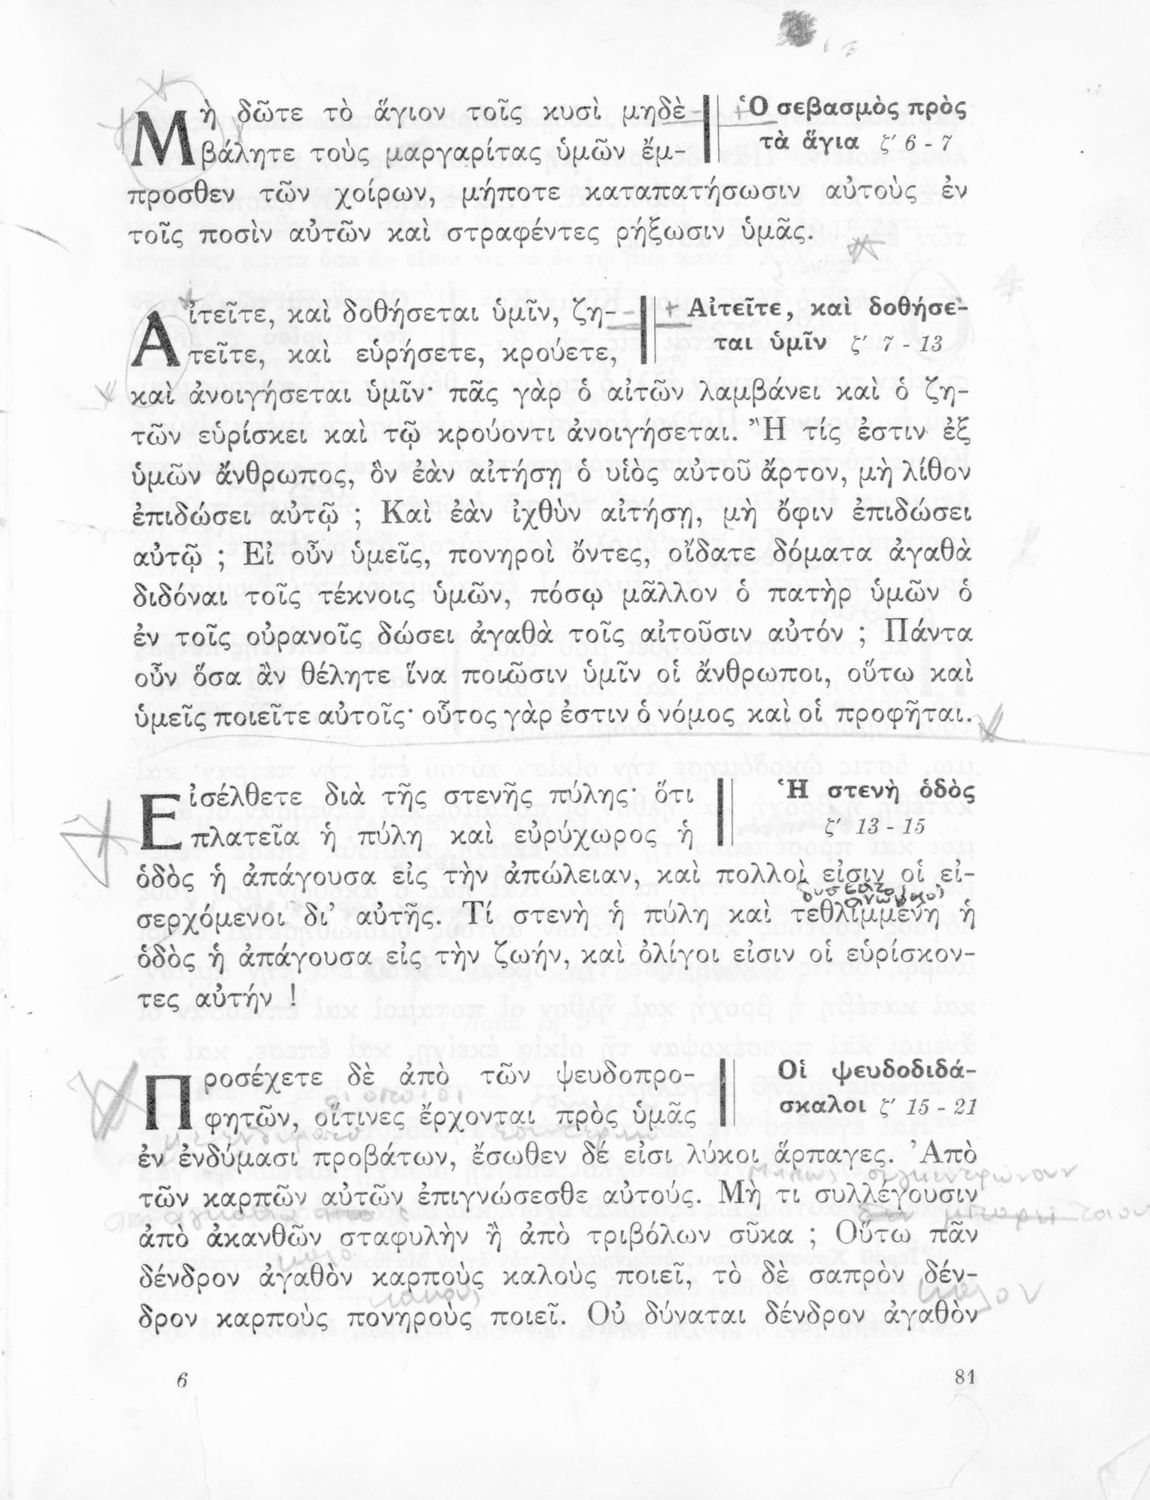 Μὴ δῶτε τὸ ἅγιον τοῖς κυσὶ μηδὲ
βάλητε τοὺς μαργαρίτας ὑμῶν ἔμ-
Ὁ σεβασμὸς πρὸς
τὰ ἅγια ζ' 6 - 7
προσθεν τῶν χοίρων, μήποτε καταπατήσωσιν αὐτοὺς ἐν
τοῖς ποσὶν αὐτῶν καὶ στραφέντες ρήξωσιν ὑμᾶς.
Αἰτεῖτε, καὶ δοθήσεται ὑμῖν, ζη-
τεῖτε, καὶ εὑρήσετε, κρούετε,
Αἰτεῖτε, καὶ δοθήσε-
ται ὑμῖν ζ' 7 - 13
καὶ ἀνοιγήσεται ὑμῖν· πᾶς γὰρ ὁ αἰτῶν λαμβάνει καὶ ὁ ζη-
τῶν εὑρίσκει καὶ τῷ κρούοντι ἀνοιγήσεται. Ἢ τίς ἐστιν ἐξ
ὑμῶν ἄνθρωπος, ὃν ἐὰν αἰτήσῃ ὁ υἱὸς αὐτοῦ ἄρτον, μὴ λίθον
ἐπιδώσει αὐτῷ ; Καὶ ἐὰν ἰχθὺν αἰτήσῃ, μὴ ὄφιν ἐπιδώσει
αὐτῷ ; Εἰ οὖν ὑμεῖς, πονηροὶ ὄντες, οἴδατε δόματα ἀγαθὰ
διδόναι τοῖς τέκνοις ὑμῶν, πόσῳ μᾶλλον ὁ πατὴρ ὑμῶν ὁ
ἐν τοῖς οὐρανοῖς δώσει ἀγαθὰ τοῖς αἰτοῦσιν αὐτόν ; Πάντα
οὖν ὅσα ἂν θέλητε ἵνα ποιῶσιν ὑμῖν οἱ ἄνθρωποι, οὕτω καὶ
ὑμεῖς ποιεῖτε αὐτοῖς· οὗτος γὰρ ἐστιν ὁ νόμος καὶ οἱ προφῆται.
Εἰσέλθετε διὰ τῆς στενῆς πύλης· ὅτι
πλατεῖα ἡ πύλη καὶ εὐρύχωρος ἡ
Ἡ στενὴ ὁδὸς
ζ' 13 - 15
ὁδὸς ἡ ἀπάγουσα εἰς τὴν ἀπώλειαν, καὶ πολλοὶ εἰσιν οἱ εἰ-
σερχόμενοι δι' αὐτῆς. Τί στενὴ ἡ πύλη καὶ τεθλιμμένη ἡ
ὁδὸς ἡ ἀπάγουσα εἰς τὴν ζωήν, καὶ ὀλίγοι εἰσιν οἱ εὑρίσκον-
τες αὐτήν !
Προσέχετε δὲ ἀπὸ τῶν ψευδοπρο-
φητῶν, οἵτινες ἔρχονται πρὸς ὑμᾶς
Οἱ ψευδοδιδά-
σκαλοι ζ' 15 - 21
ἐν ἐνδύμασι προβάτων, ἔσωθεν δέ εἰσι λύκοι ἅρπαγες. Ἀπὸ
τῶν καρπῶν αὐτῶν ἐπιγνώσεσθε αὐτούς. Μὴ τι συλλέγουσιν
ἀπὸ ἀκανθῶν σταφυλὴν ἢ ἀπὸ τριβόλων σῦκα ; Οὕτω πᾶν
δένδρον ἀγαθὸν καρποὺς καλοὺς ποιεῖ, τὸ δὲ σαπρὸν δέν-
δρον καρποὺς πονηροὺς ποιεῖ. Οὐ δύναται δένδρον ἀγαθὸν
6
81